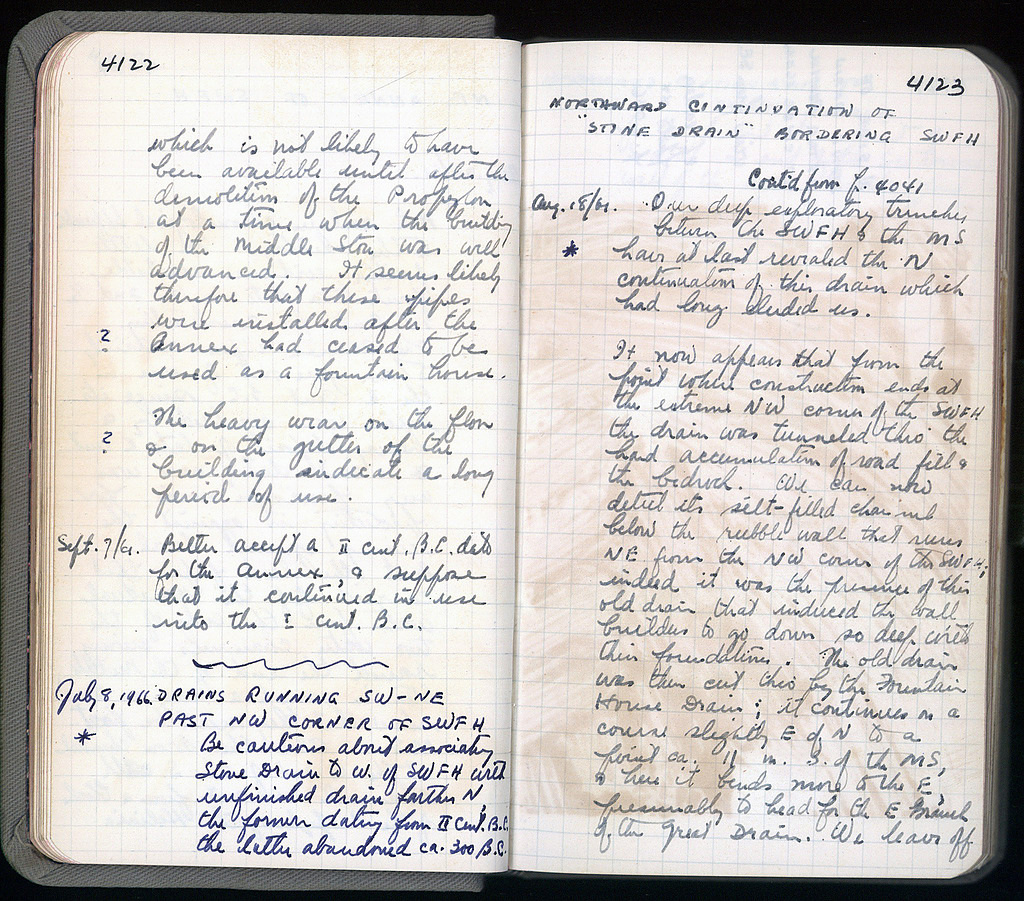 4122
which is not likely to have
been available until after the
demolition of the Propylon
at a time when the building
of the Middle Stoa was well
advanced. It seems likely
therefore that these pipes
were installed after the
? Annex had ceased to be
used as a fountain house.
The heavy wear on the floor
? & on the gutter of the
building indicate a long
period of use.
Sept. 7/61. Better accept a II cent. B.C. date
for the Annex, & suppose
that it continued in use
into the I cent. B.C.
July 8, 1966. DRAINS RUNNING SW-NE
PAST NW CORNER OF SWFH
* Be cautious about associating
Stone Drain to W. of SWFH with
unfinished drain farther N,
the former dating from II cent. B.C.
the latter abandoned ca. 300 B.C.
4123
NORTHWARD CONTINUATION OF
"STONE DRAIN" BORDERING SWFH
Cont'd from p. 4041
Aug. 18/61. Our deep exploratory trenches
betwn the SWFH & the MS
* have at last revealed the N
continuation of this drain which
had long eluded us.
It now appears that from the
point where construction ends at
the extreme NW corner of the SWFH
the drain was tunneled thro' the
hard accumulation of road fill &
the bedrock. We can now
detect its silt-filled channel
below the rubble wall that runs
NE from the NW corner of the SWFH;
indeed it was the presence of this
old drain that induced the wall
builders to go down so deep with
their foundations. The old drain
was then cut thro by the Fountain
House Drain; it continues on a
course slightly E of N to a
point ca. 11 m. S. of the MS,
& here it bends more to the E,
presumably to head for the E Branch
of the Great Drain. We leave off